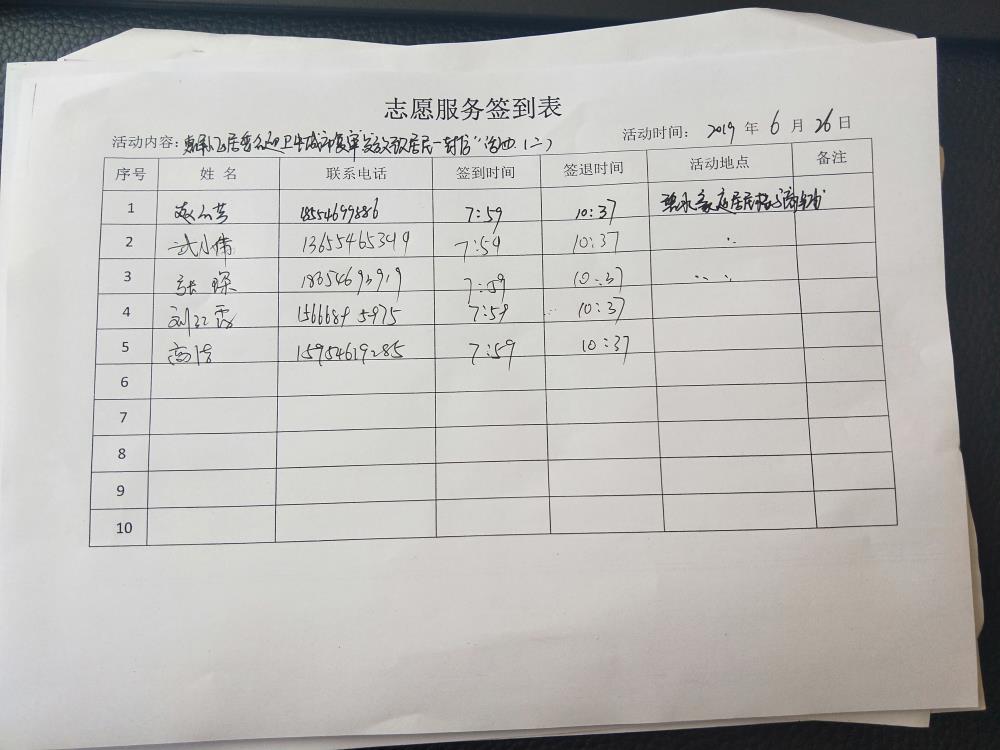 志愿服务签到表
活动内容: 居委会迎卫生城市复审发放致居民一封信"活动(二)
活动时间: 2019 年 6 月 26 日
序号 姓 名 联系电话 签到时间 签退时间 活动地点 备注
1 18554699886 7:59 10:37 家庭居民楼
2 武小伟 13655465349 7:59 10:37 〃
3 张琛 7:59 10:37 〃
4 刘江霞 15666895975 7:59 10:37
5 高洁 15954619285 7:59 10:37
6
7
8
9
10